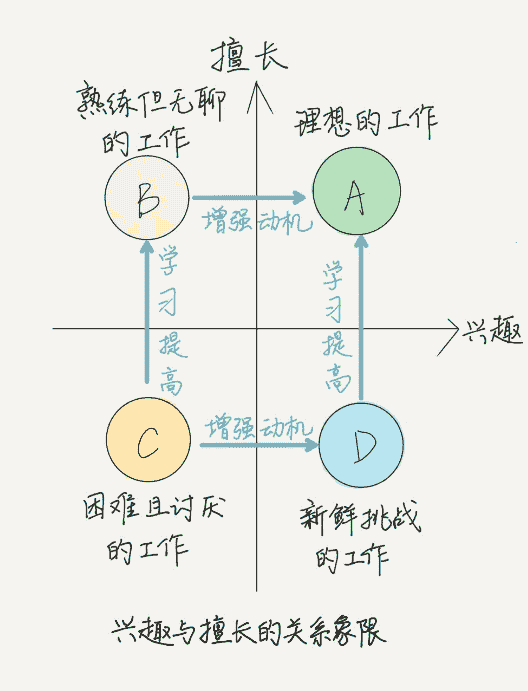 擅长
熟练但无聊
的工作
理想的工作
B
A
增强动机
学习提高
学习提高
兴趣
C
增强动机
D
困难且讨厌
的工作
新鲜挑战
的工作
兴趣与擅长的关系象限